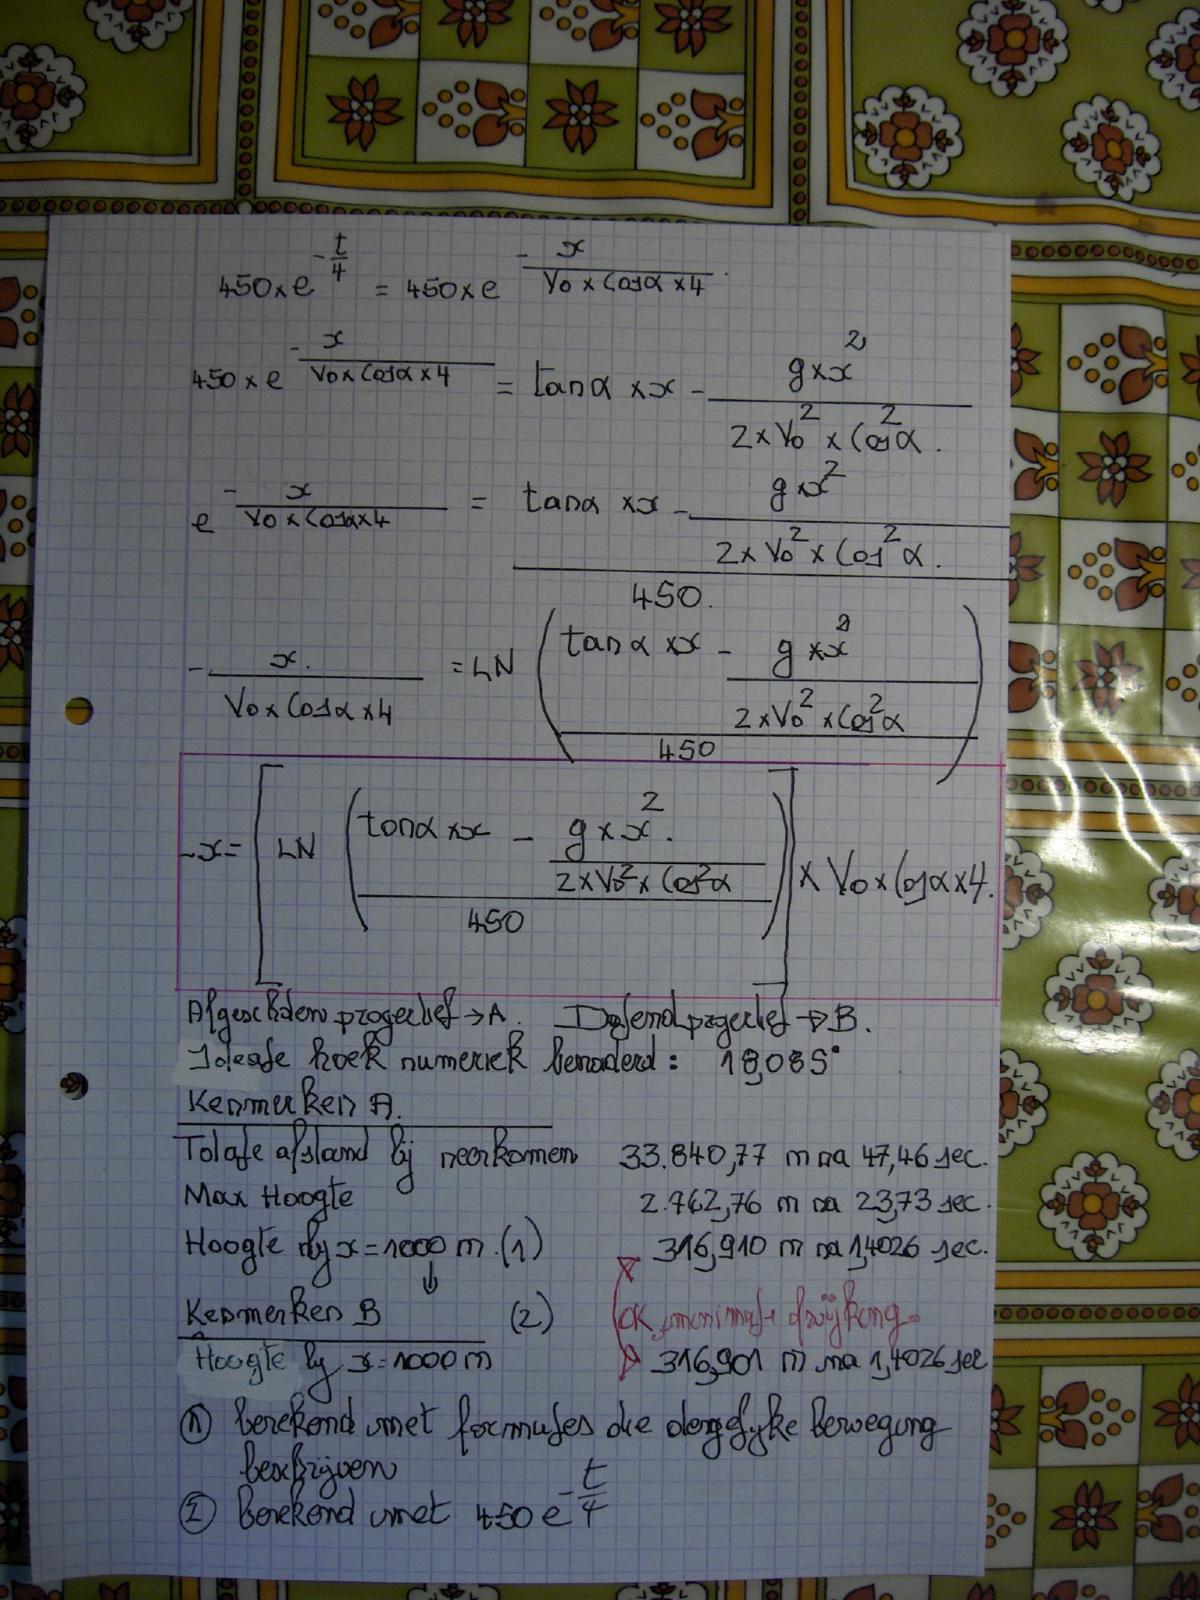 450 × e^(-t/4) = 450 × e^(-x/(V0 × Cosα × 4)).
450 × e^(-x/(V0 × Cosα × 4)) = tanα × x - (g × x²)/(2 × V0² × Cos²α.)
e^(-x/(V0 × Cosα × 4)) = (tanα × x - (g × x²)/(2 × V0² × Cos²α.))/450.
-x./(V0 × Cosα × 4) = LN ((tanα × x - (g × x²)/(2 × V0² × Cos²α))/450)
-x = [LN ((tanα × x - (g × x².)/(2 × V0² × Cos²α))/450)] × V0 × Cosα × 4.
Afgeschoten progectief → A. Dalend progectief → B.
Ideale hoek numeriek benaderd : 18,085°
Kenmerken A.
Totale afstand bij neerkomen 33.840,77 m na 47,46 sec.
Max Hoogte 2.762,76 m na 23,73 sec.
Hoogte bij x = 1000 m. (1) 316,910 m na 1,4026 sec.
↓
Kenmerken B (2) OK, minimale afwijking.
Hoogte bij x = 1000 m 316,901 m na 1,4026 sec
(1) berekend met formules die dergelijke beweging
beschrijven
(2) berekend met 450 e^(-t/4)